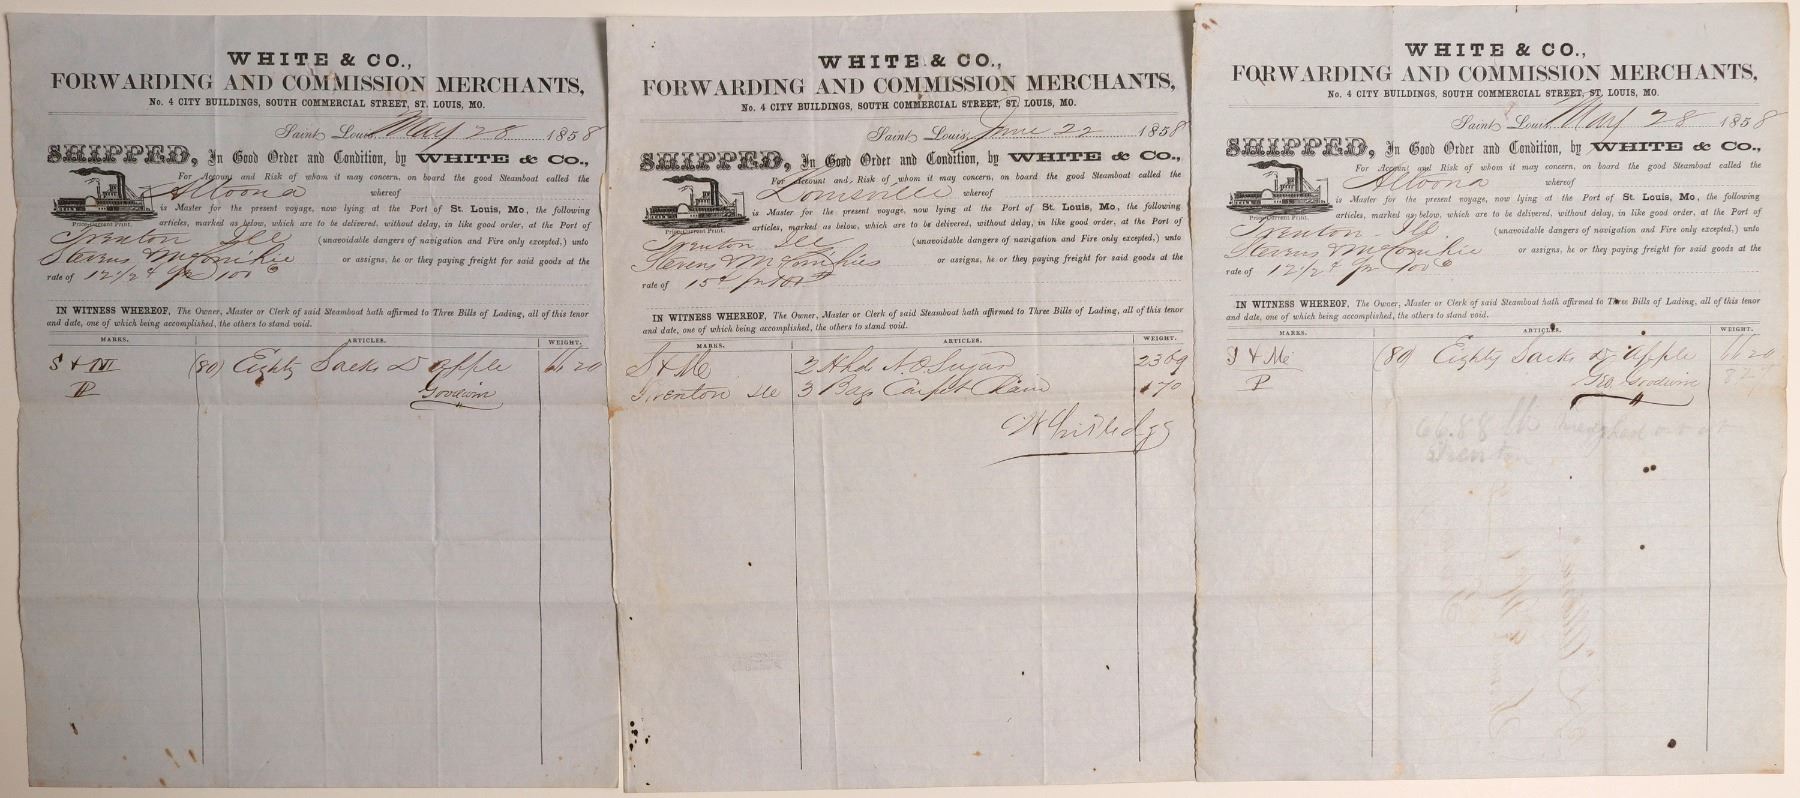 WHITE & CO.,
FORWARDING AND COMMISSION MERCHANTS,
No. 4 CITY BUILDINGS, SOUTH COMMERCIAL STREET, ST. LOUIS, MO.
Saint Louis, May 28 1858
SHIPPED, In Good Order and Condition, by WHITE & CO.,
For Account and Risk of whom it may concern, on board the good Steamboat called the
Altoona whereof
is Master for the present voyage, now lying at the Port of St. Louis, Mo., the following
Price Current Print.
articles, marked as below, which are to be delivered, without delay, in like good order, at the Port of
Trenton Ill (unavoidable dangers of navigation and Fire only excepted,) unto
Stevens & McConikie or assigns, he or they paying freight for said goods at the
rate of 12 1/2 ¢ pr 100
IN WITNESS WHEREOF, The Owner, Master or Clerk of said Steamboat hath affirmed to Three Bills of Lading, all of this tenor
and date, one of which being accomplished, the others to stand void.
MARKS. ARTICLES. WEIGHT.
S & M (80) Eighty Sacks D apple 6620
P Goodwin
WHITE & CO.,
FORWARDING AND COMMISSION MERCHANTS,
No. 4 CITY BUILDINGS, SOUTH COMMERCIAL STREET, ST. LOUIS, MO.
Saint Louis, June 22 1858
SHIPPED, In Good Order and Condition, by WHITE & CO.,
For Account and Risk of whom it may concern, on board the good Steamboat called the
Louisville whereof
is Master for the present voyage, now lying at the Port of St. Louis, Mo., the following
Price Current Print.
articles, marked as below, which are to be delivered, without delay, in like good order, at the Port of
Trenton Ill (unavoidable dangers of navigation and Fire only excepted,) unto
Stevens & McConikies or assigns, he or they paying freight for said goods at the
rate of 15¢ pr 100
IN WITNESS WHEREOF, The Owner, Master or Clerk of said Steamboat hath affirmed to Three Bills of Lading, all of this tenor
and date, one of which being accomplished, the others to stand void.
MARKS. ARTICLES. WEIGHT.
S & Mc 2 Hhds N.O. Sugar 2369
Trenton Ill 3 Bags Carpet Chain 170
WHITE & CO.,
FORWARDING AND COMMISSION MERCHANTS,
No. 4 CITY BUILDINGS, SOUTH COMMERCIAL STREET, ST. LOUIS, MO.
Saint Louis, May 28 1858
SHIPPED, In Good Order and Condition, by WHITE & CO.,
For Account and Risk of whom it may concern, on board the good Steamboat called the
Altoona whereof
is Master for the present voyage, now lying at the Port of St. Louis, Mo., the following
Price Current Print.
articles, marked as below, which are to be delivered, without delay, in like good order, at the Port of
Trenton Ill (unavoidable dangers of navigation and Fire only excepted,) unto
Stevens & McConikie or assigns, he or they paying freight for said goods at the
rate of 12 1/2 ¢ pr 100
IN WITNESS WHEREOF, The Owner, Master or Clerk of said Steamboat hath affirmed to Three Bills of Lading, all of this tenor
and date, one of which being accomplished, the others to stand void.
MARKS. ARTICLES. WEIGHT.
S & Mc (80) Eighty Sacks D. Apple 6620
P Geo. Goodwin
66.88 lb
Trenton